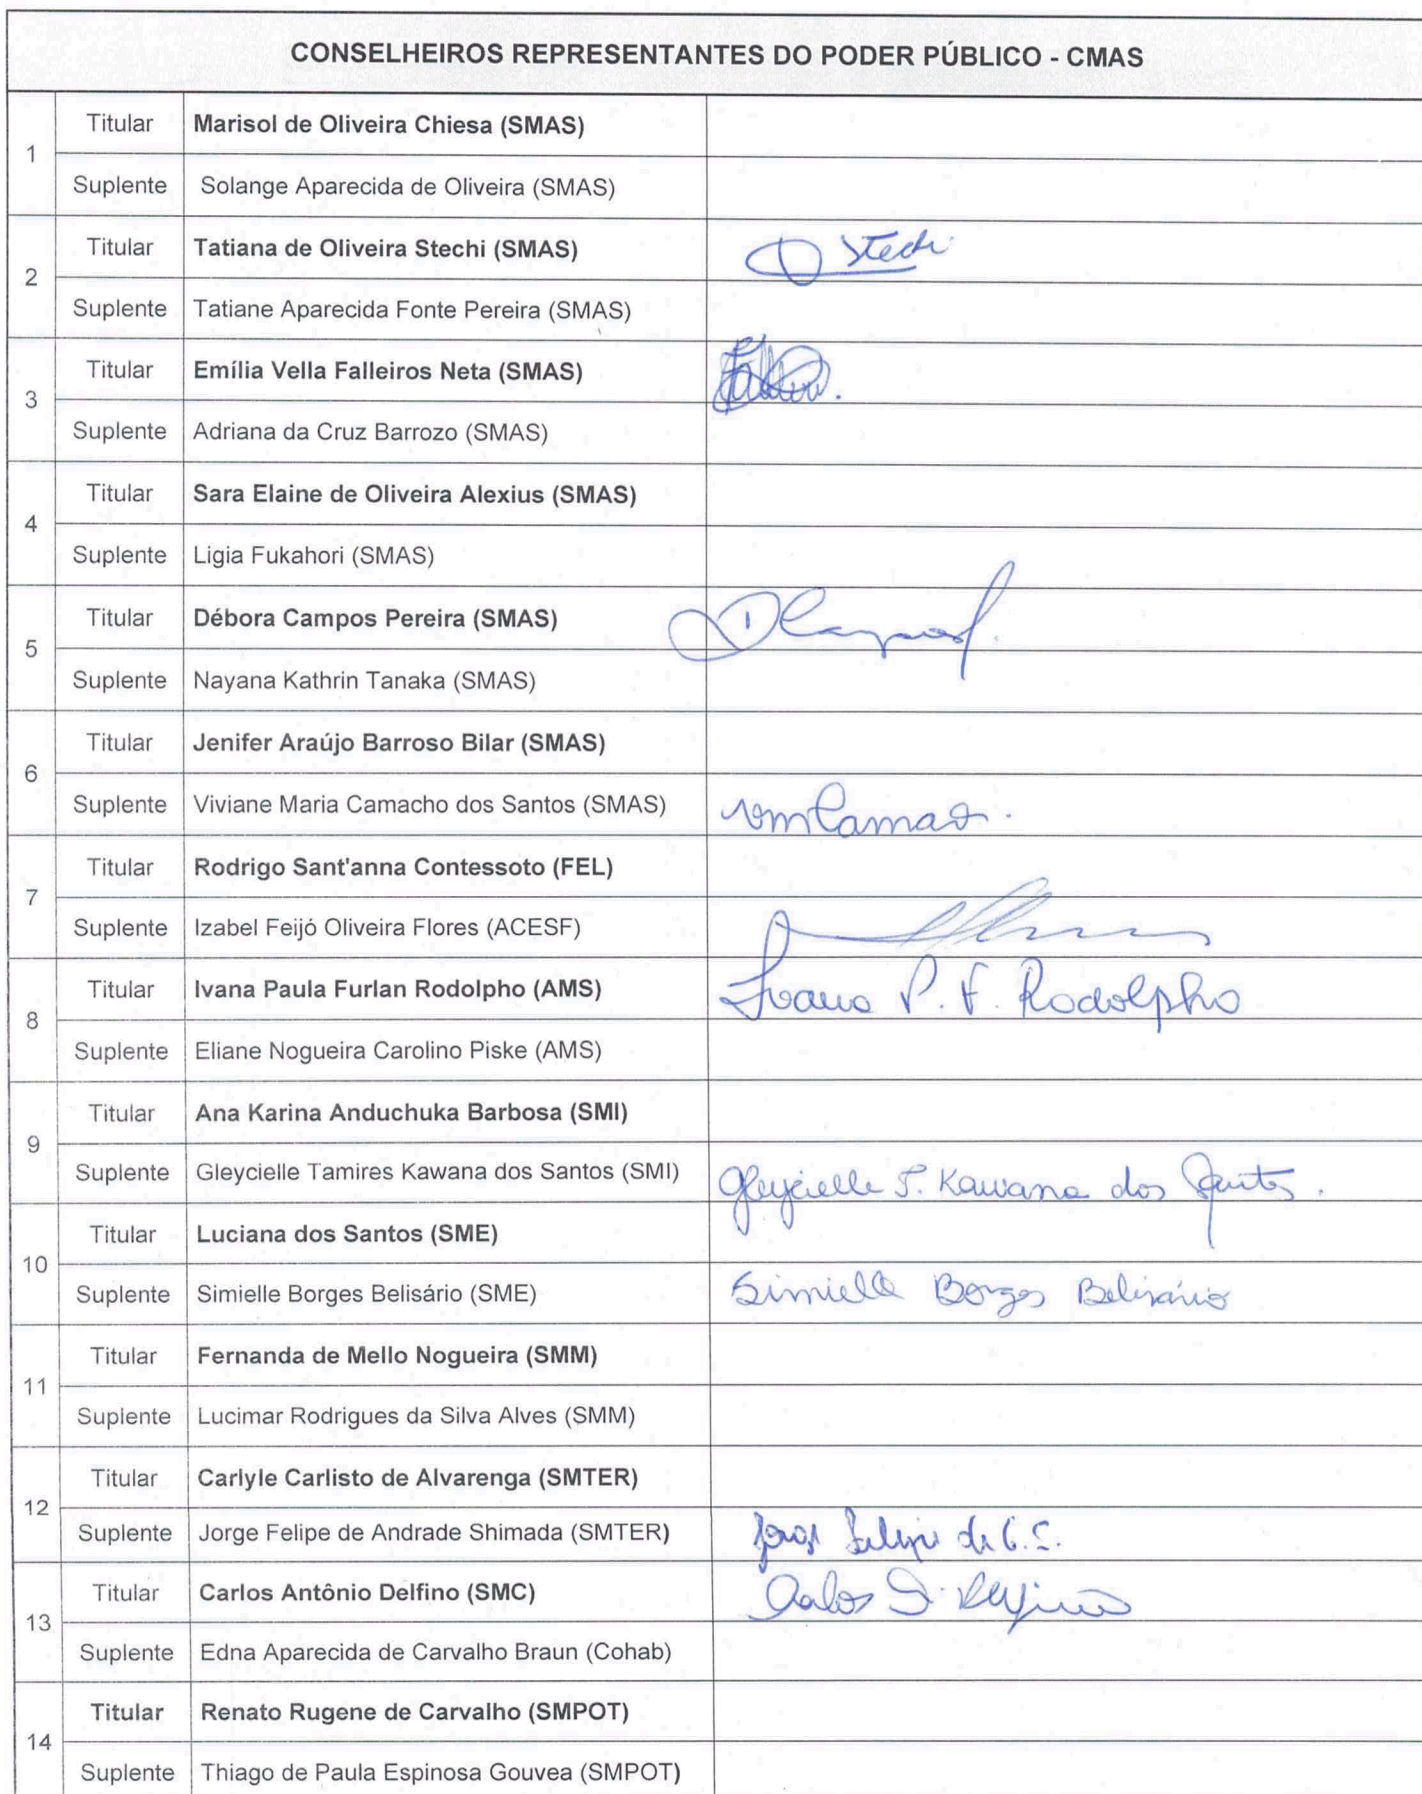 CONSELHEIROS REPRESENTANTES DO PODER PÚBLICO - CMAS
1
Titular Marisol de Oliveira Chiesa (SMAS)
Suplente Solange Aparecida de Oliveira (SMAS)
2
Titular Tatiana de Oliveira Stechi (SMAS) Stechi
Suplente Tatiane Aparecida Fonte Pereira (SMAS)
3
Titular Emília Vella Falleiros Neta (SMAS)
Suplente Adriana da Cruz Barrozo (SMAS)
4
Titular Sara Elaine de Oliveira Alexius (SMAS)
Suplente Ligia Fukahori (SMAS)
5
Titular Débora Campos Pereira (SMAS)
Suplente Nayana Kathrin Tanaka (SMAS)
6
Titular Jenifer Araújo Barroso Bilar (SMAS)
Suplente Viviane Maria Camacho dos Santos (SMAS)
7
Titular Rodrigo Sant'anna Contessoto (FEL)
Suplente Izabel Feijó Oliveira Flores (ACESF)
8
Titular Ivana Paula Furlan Rodolpho (AMS) Ivana P. F. Rodolpho
Suplente Eliane Nogueira Carolino Piske (AMS)
9
Titular Ana Karina Anduchuka Barbosa (SMI)
Suplente Gleycielle Tamires Kawana dos Santos (SMI) Gleycielle T. Kawana dos Santos.
10
Titular Luciana dos Santos (SME)
Suplente Simielle Borges Belisário (SME) Simielle Borges Belisário
11
Titular Fernanda de Mello Nogueira (SMM)
Suplente Lucimar Rodrigues da Silva Alves (SMM)
12
Titular Carlyle Carlisto de Alvarenga (SMTER)
Suplente Jorge Felipe de Andrade Shimada (SMTER) Jorge Felipe de
13
Titular Carlos Antônio Delfino (SMC) Carlos Delfino
Suplente Edna Aparecida de Carvalho Braun (Cohab)
14
Titular Renato Rugene de Carvalho (SMPOT)
Suplente Thiago de Paula Espinosa Gouvea (SMPOT)